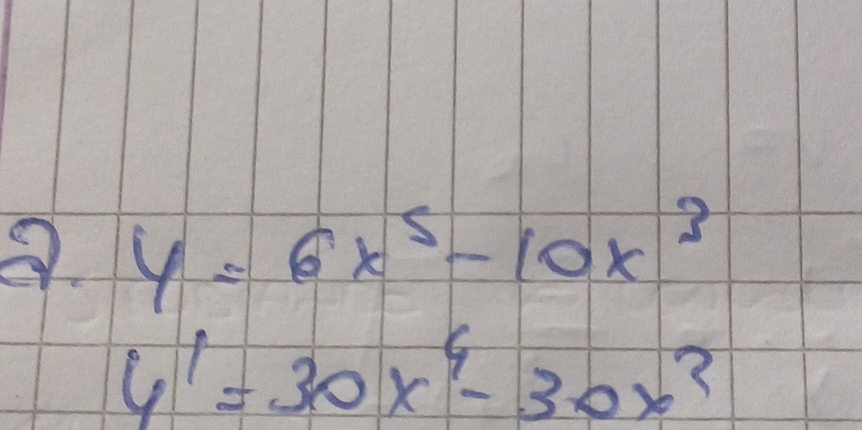 2. y = 6x⁵ - 10x³
y' = 30x⁴ - 30x²